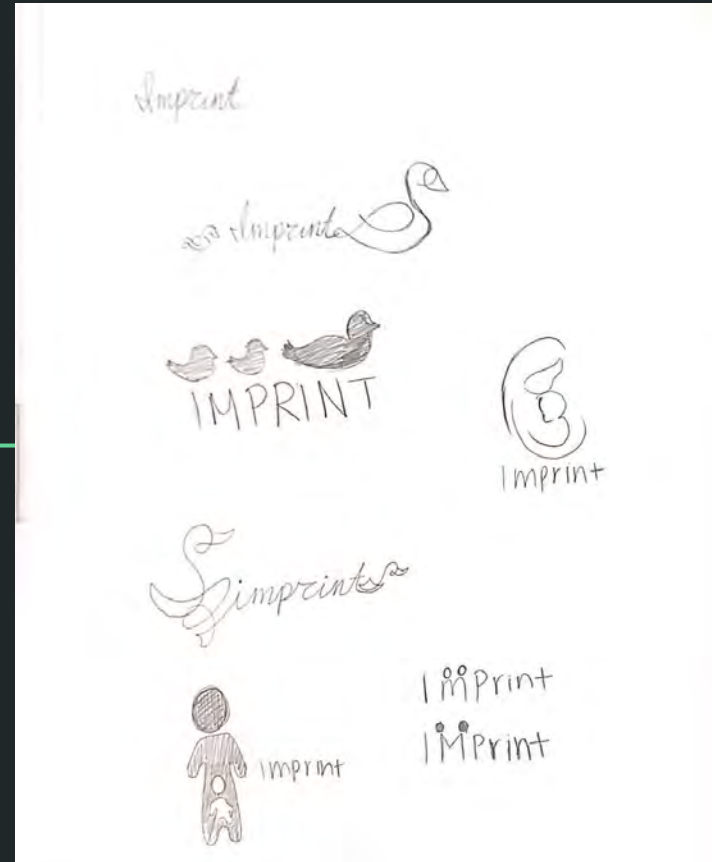 Imprint
Imprint
IMPRINT
Imprint
imprint
Imprint
IMPrint
imprint